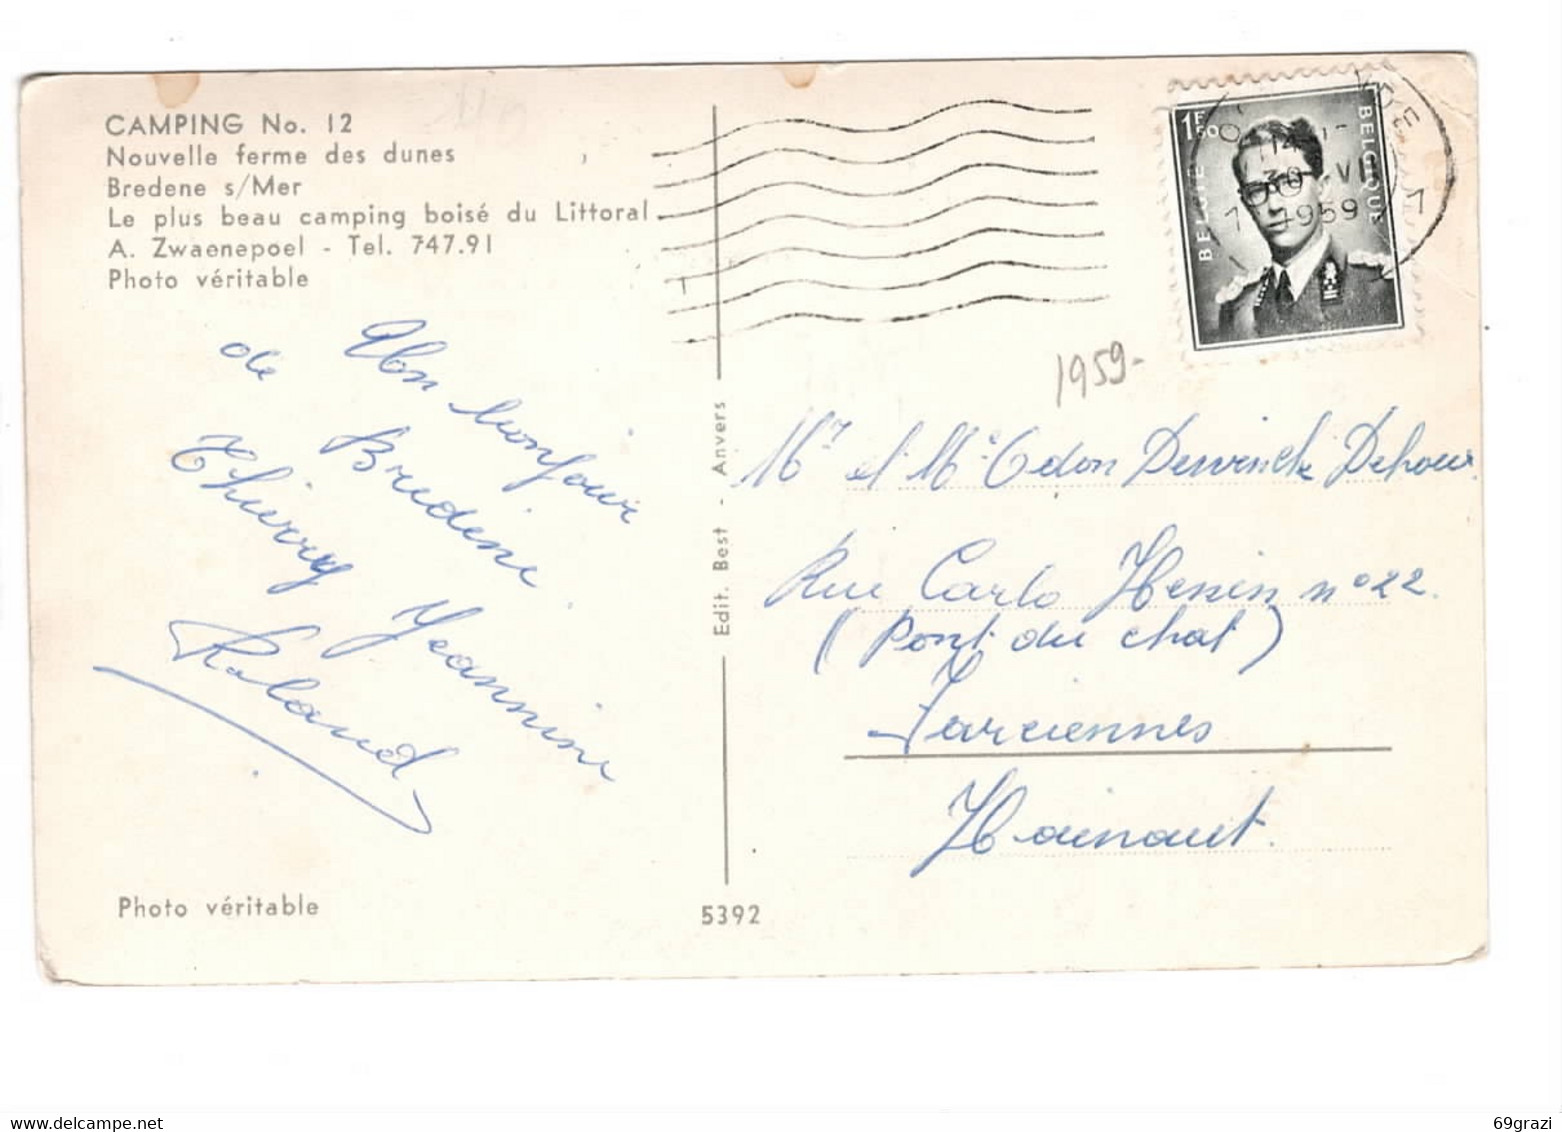 CAMPING No. 12
Nouvelle ferme des dunes
Bredene s/Mer
Le plus beau camping boisé du Littoral
A. Zwaenepoel - Tel. 747.91
Photo véritable
Un bonjour
de Bredene.
Thierry Jeannine
Roland
Photo véritable
Edit. Best - Anvers
5392
1F50
BELGIE
BELGIQUE
30 VI
1959
1 1
1959-
Mr et Me Odon Dervinck Dehoux
Rue Carlo Henin n° 22.
(Pont du chat)
Farciennes
Hainaut.
www.delcampe.net
69grazi